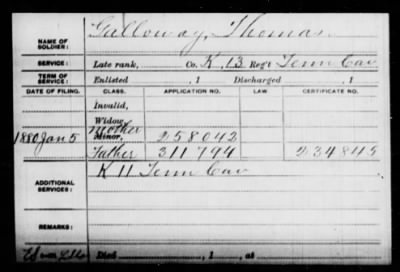 NAME OF SOLDIER: Galloway, Thomas
SERVICE: Late rank, Co. K, 13 Reg't Tenn Cav
TERM OF SERVICE: Enlisted , 1 Discharged , 1
DATE OF FILING. CLASS. APPLICATION NO. LAW. CERTIFICATE NO.
Invalid,
Widow,
1880 Jan 5 Mother Minor, 258042
Father 311794 234845
ADDITIONAL SERVICES: K 11 Tenn Cav
REMARKS:
Died , 1 , at